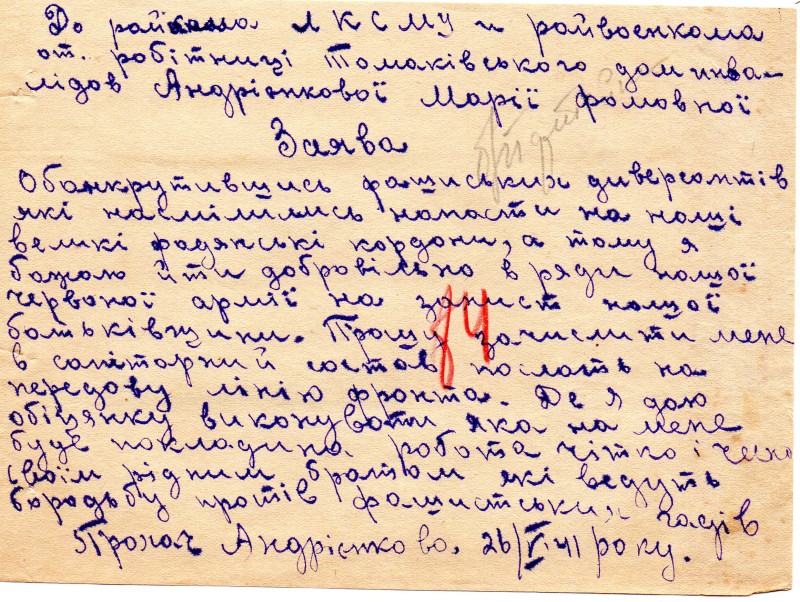 До райкома ЛКСМУ и райвоенкома
от. робітниці Томаківського дом инва-
лідов Андрієнкової Марії Фомовної
Заява
Обанкрутившись фашиських диверсантів
які насмілились напасти на наші
великі радянські кордони, а тому я
бажаю йти добровільно в ряди нашої
червоної армії на захист нашої
батьківщини. Прошу зачислити мене
в санітарний состав послать на
передову лінію фронта. Де я даю
обіцянку виконувати яка на мене
буде покладина робота чітко і
своїм рідним братам які ведуть
бородьбу протів фашистських гадів
Прохач Андрієнкова. 26/VI.41 року.
84